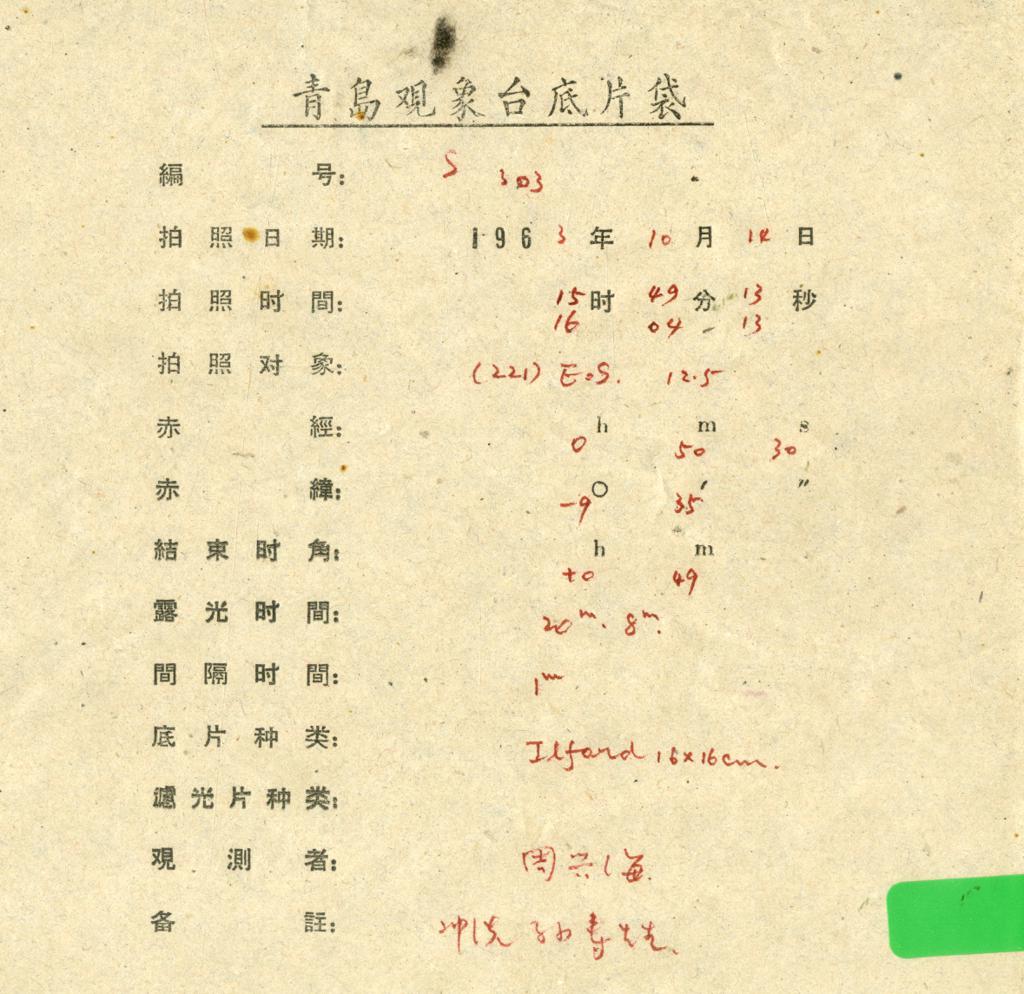 青島观象台底片袋
編号: S 303
拍照日期: 1963年10月14日
拍照时間: 15时49分13秒
16 04 - 13
拍照对象: (221) EoS. 12.5
赤經: 0h 50m 30s
赤緯: -9° 35′ ″
結束时角: +0h 49m
露光时間: 20m. 8m.
間隔时間: 1m
底片种类: Ilford 16×16cm.
濾光片种类:
观測者: 周兴海
备註: 冲洗 孙寿